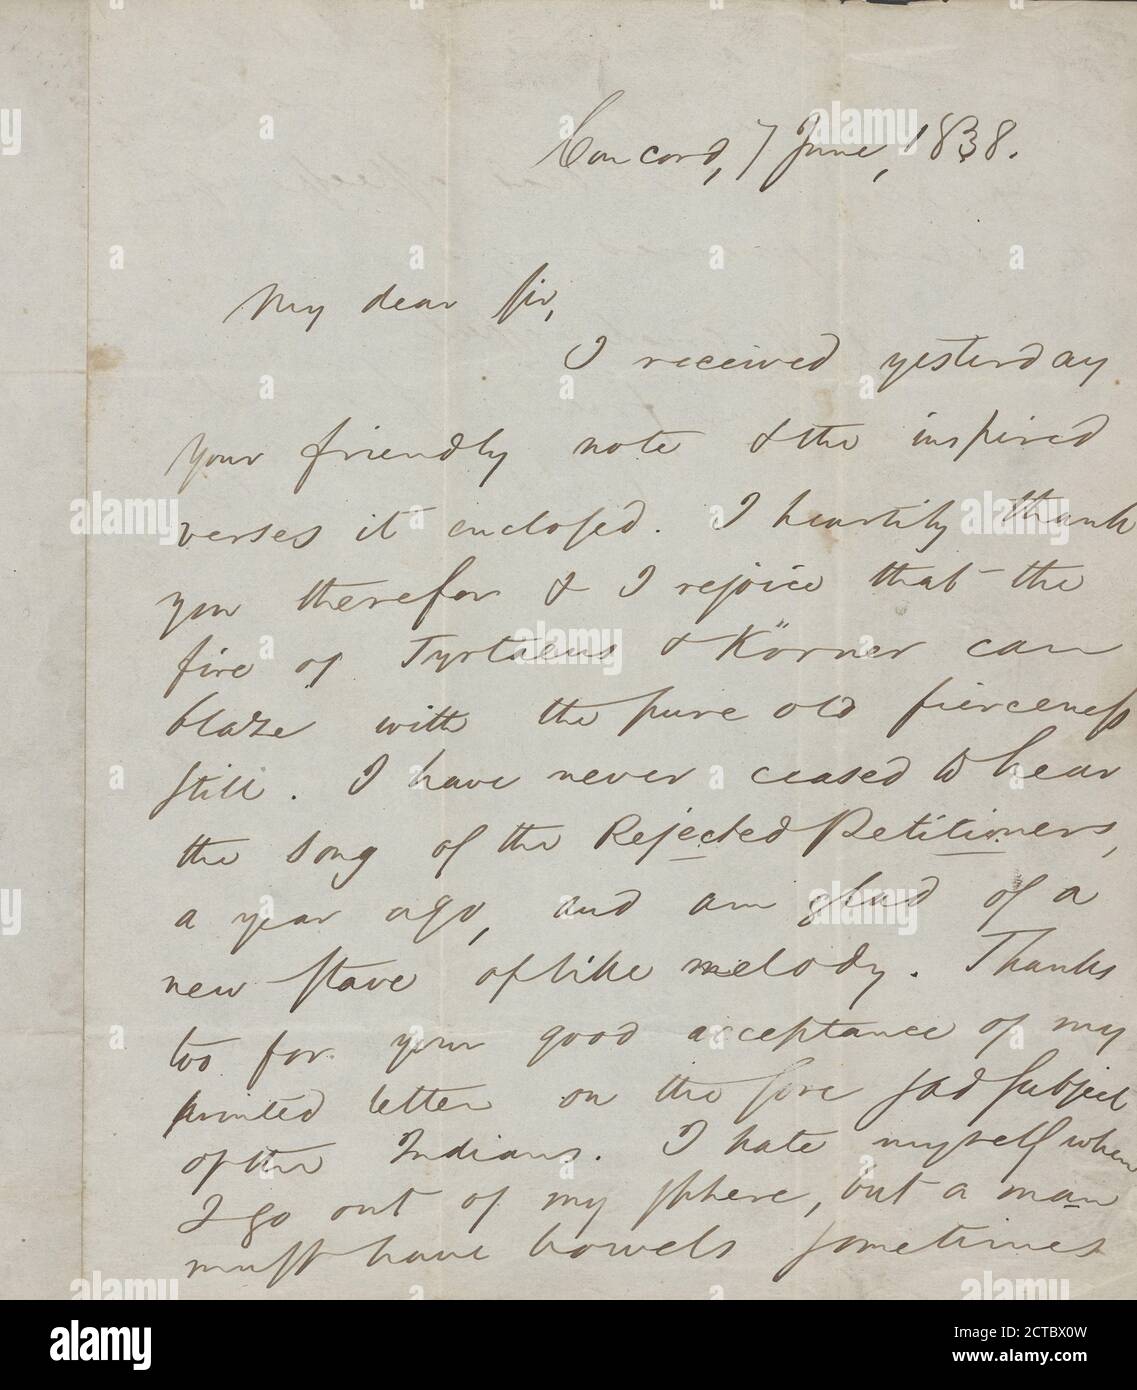 Concord, 7 June, 1838.
My dear Sir,
I received yesterday
your friendly note & the inspired
verses it enclosed. I heartily thank
you therefor & I rejoice that the
fire of Tyrtaeus & Körner can
blaze with the pure old fierceness
still. I have never ceased to hear
the song of the Rejected Petitioners,
a year ago, and am glad of a
new stave of like melody. Thanks
too for your good acceptance of my
printed letter on the sore sad subject
of the Indians. I hate myself when
I go out of my sphere, but a man
must have bowels sometimes
alamy
Image ID: 2CTBX0W
www.alamy.com